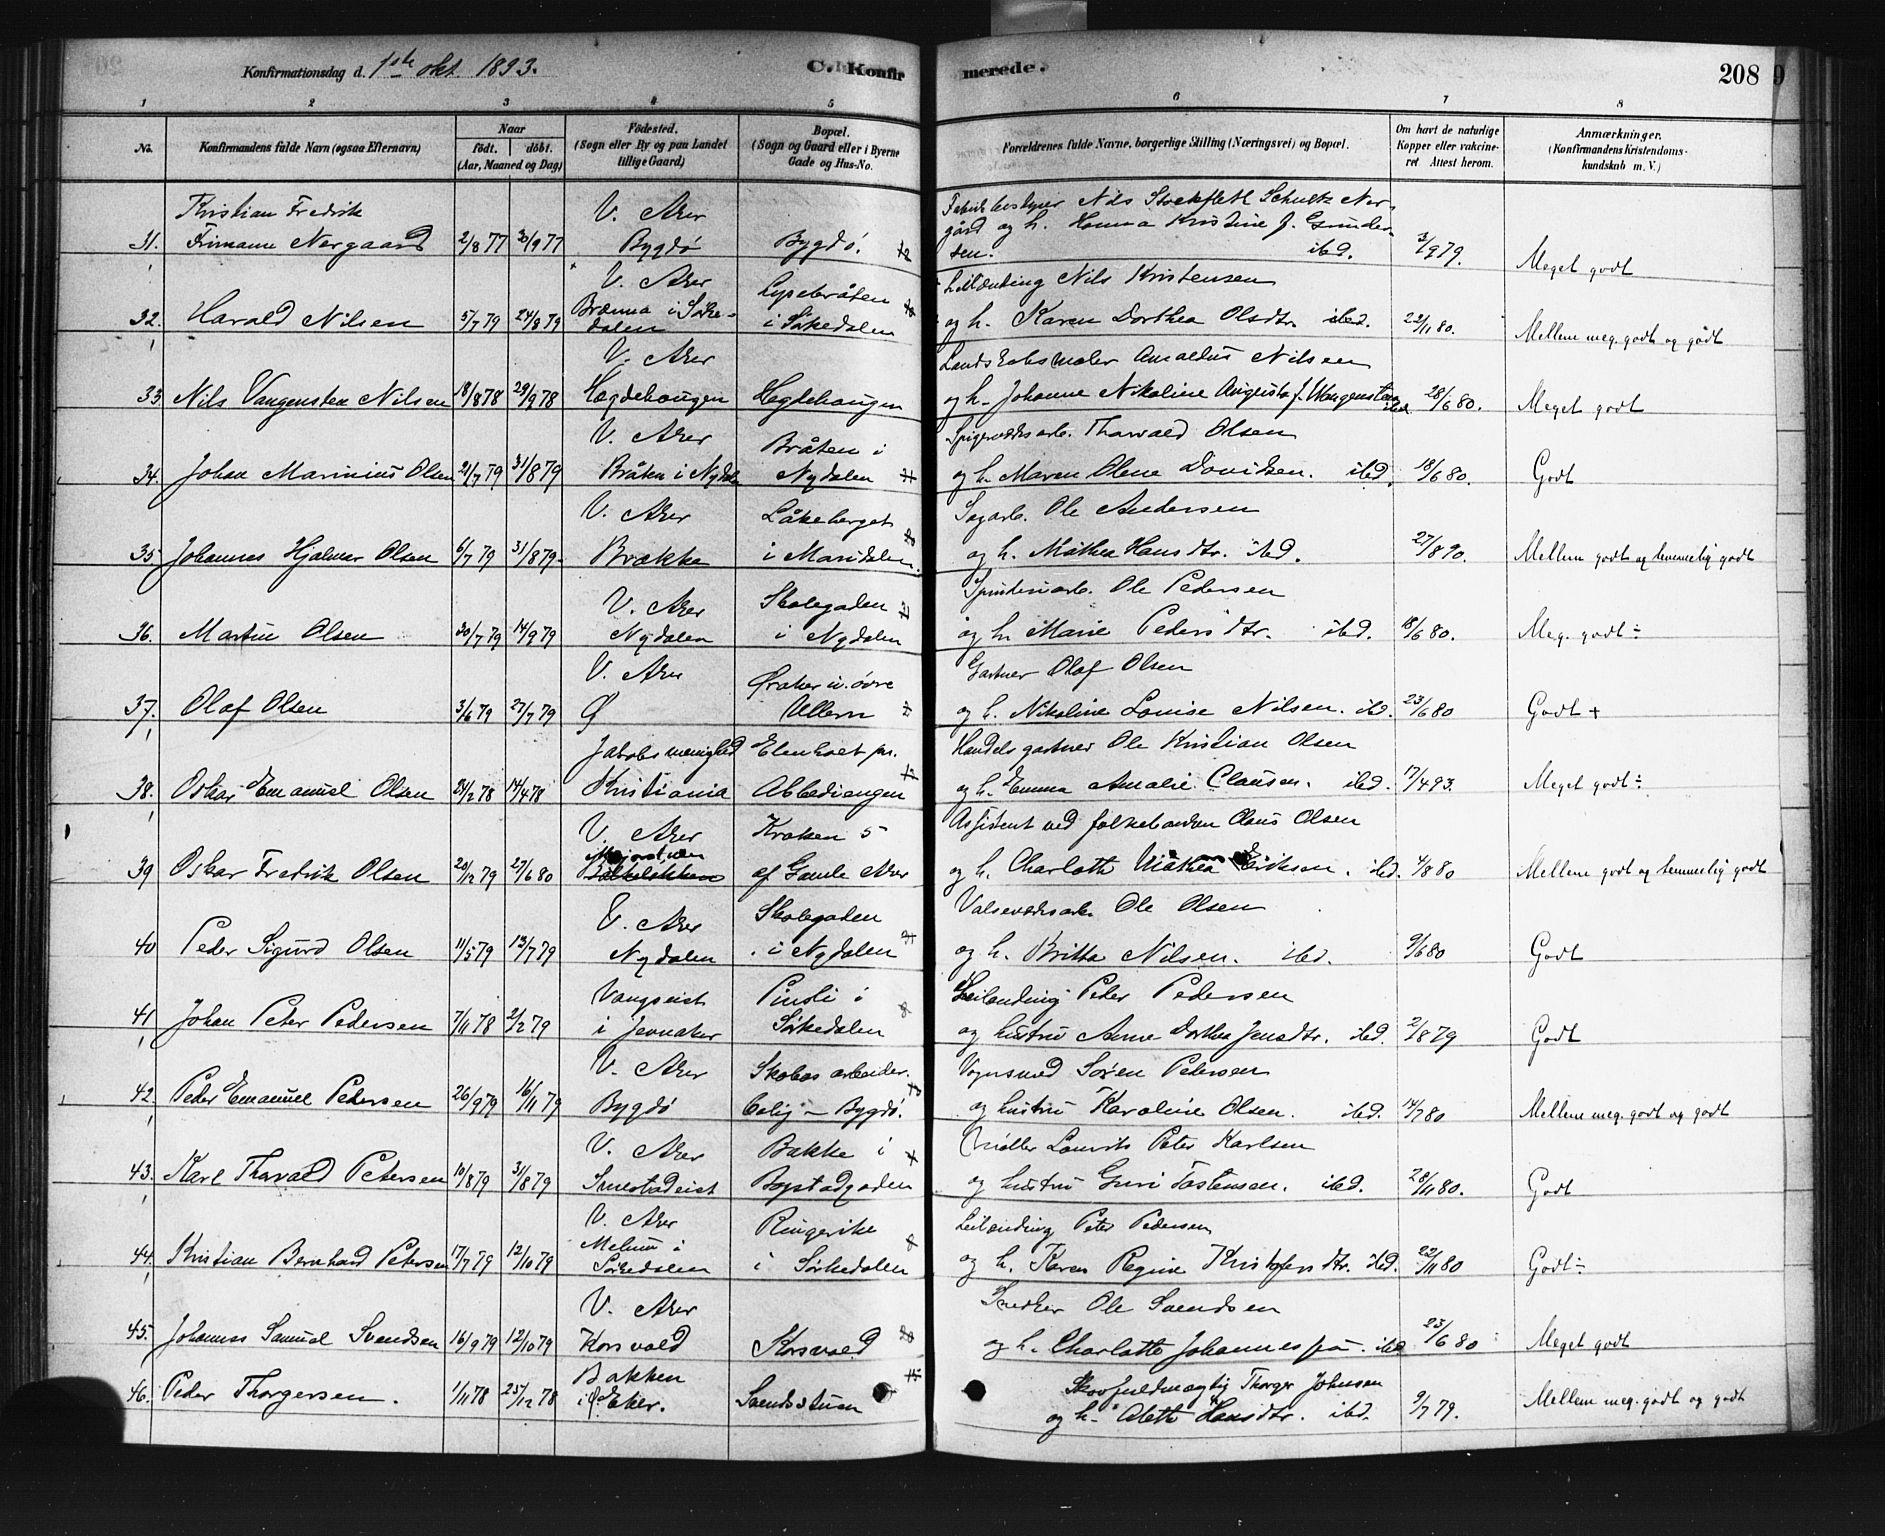 Konfirmationsdag d. 1ste okt 1893.
C. Konfir
merede.
208
1 2 3 4 5 6 7 8
No.
Konfirmandens fulde Navn (ogsaa Efternavn)
Naar
født. døbt.
(Aar, Maaned og Dag)
Fødested.
(Sogn eller By og paa Landet
tillige Gaard)
Bopæl.
(Sogn og Gaard eller i Byerne
Gade og Hus-No.
Forældrenes fulde Navne, borgerlige Stilling (Næringsvei) og Bopæl.
Om havt de naturlige
Kopper eller vakcine-
ret Attest herom.
Anmærkninger.
(Konfirmandens Kristendoms-
kundskab m. V.)
Kristian Fredrik V. Aker Nils Stockfleth Schultz Nør-
31. Frimann Nørgaard 2/8 77 30/9 77 Bygdö Bygdö. gård og h. Hanna Kristine f. Gunder-
sen. ibd. 3/9 79. Meget godt
V. Aker Lysebråten Leilænding Nils Kristensen
32. Harald Nilsen 5/7 79 24/8 79 Brænna i Sørke-
dalen i Sørkedalen og h. Karen Dorthea Olsdtr. ibd. 22/11 80. Mellem meg. godt og godt
V. Aker Landskabsmaler Amaldus Nilsen
33. Nils Vangensten Nilsen 18/8 78 29/9 78 Hægdehaugen Hegdehaugen og h. Johanne Nikoline Augusta f. Wangensten ibd. 28/6 80. Meget godt
V. Aker Bråten i Spigerværksarb. Thorvald Olsen
34. Johan Marinius Olsen 21/7 79 31/8 79 Bråten i Nydalen Nydalen og h. Maren Oline Davidsen. ibd. 18/6 80. Godt
V. Aker Låkeberget Sagarb. Ole Andersen
35. Johannes Hjalmar Olsen 6/7 79 31/8 79. Brække i Maridalen. og h. Mathea Hansdtr. ibd. 27/8 90. Mellem godt og temmelig godt
V. Aker Skolegaden Spinderiarb. Ole Pedersen
36. Martin Olsen 30/7 79 14/9 79 Nydalen i Nydalen og h. Marie Pedersdtr. ibd. 18/6 80. Meg. godt ÷
V. Aker Øraker u. övre Gartner Olaf Olsen
37. Olaf Olsen 3/6 79 27/7 79 Ø Ullern og h. Nikoline Louise Nilsen. ibd. 23/6 80 Godt +
Jakobs menighed Elenholt pr. Handelsgartner Ole Kristian Olsen
38. Oskar Emanuel Olsen 24/2 78 14/4 78 Kristiania Abbediengen og h. Emma Amalie Clausen. ibd. 17/4 93. Meget godt ÷
V. Aker Kroken 5 Assistent ved folkebanken Claus Olsen
39 Oskar Fredrik Olsen 20/12 79 27/6 80 Majorstuen af Gamle Aker og h. Charlotte Mathea Eriksen. ibd. 4/8 80 Mellem godt og temmelig godt
V. Aker Skolegaden Valseværksarb. Ole Olsen
40 Peder Sigurd Olsen 11/5 79 13/7 79 Nydalen i Nydalen og h. Britta Nilsen. ibd. 9/6 80 Godt
Vangseist Pinsli i Leilænding Peder Pedersen
41 Johan Peter Pedersen 7/11 78 2/2 79 i Jevnaker Sørkedalen og hustru Anne Dorthea Jensdtr. ibd. 2/8 79 Godt
V. Aker Skabos arbeider- Vognsmed Sören Pedersen
42. Peder Emanuel Pedersen 26/9 79 16/11 79 Bygdö bolig – Bygdö. og hustru Karoline Olsen. ibd. 14/7 80 Mellem meg. godt og godt
V. Aker Bakke i Møller Laurits Peter Karlsen
43. Karl Thorvald Petersen 10/8 79 31/8 79 Smestadeist Bogstadgaden og hustru Guri Tostensen. ibd. 28/11 80. Godt
V. Aker Ringerike Leilænding Peter Pedersen
44. Kristian Bernhard Petersen 17/7 79 12/10 79 Melum i
Sørkedalen i Sørkedalen og h. Karen Regine Kristofersdtr. ibd. 22/11 80 Godt ÷
V. Aker Snedker Ole Svendsen
45. Johannes Samuel Svendsen 16/9 79 12/10 79 Korsvold Korsvold og h. Charlotte Johannesfa. ibd 23/6 80 Meget godt
Bakken Skovfuldmægtig Thorger Johnsen
46. Peder Thorgersen. 1/11 78 25/12 78 i Ø. Eker. Svendsstuen og h. Aleth Hansdtr. ibd. 9/7 79. Mellem meg. godt og godt